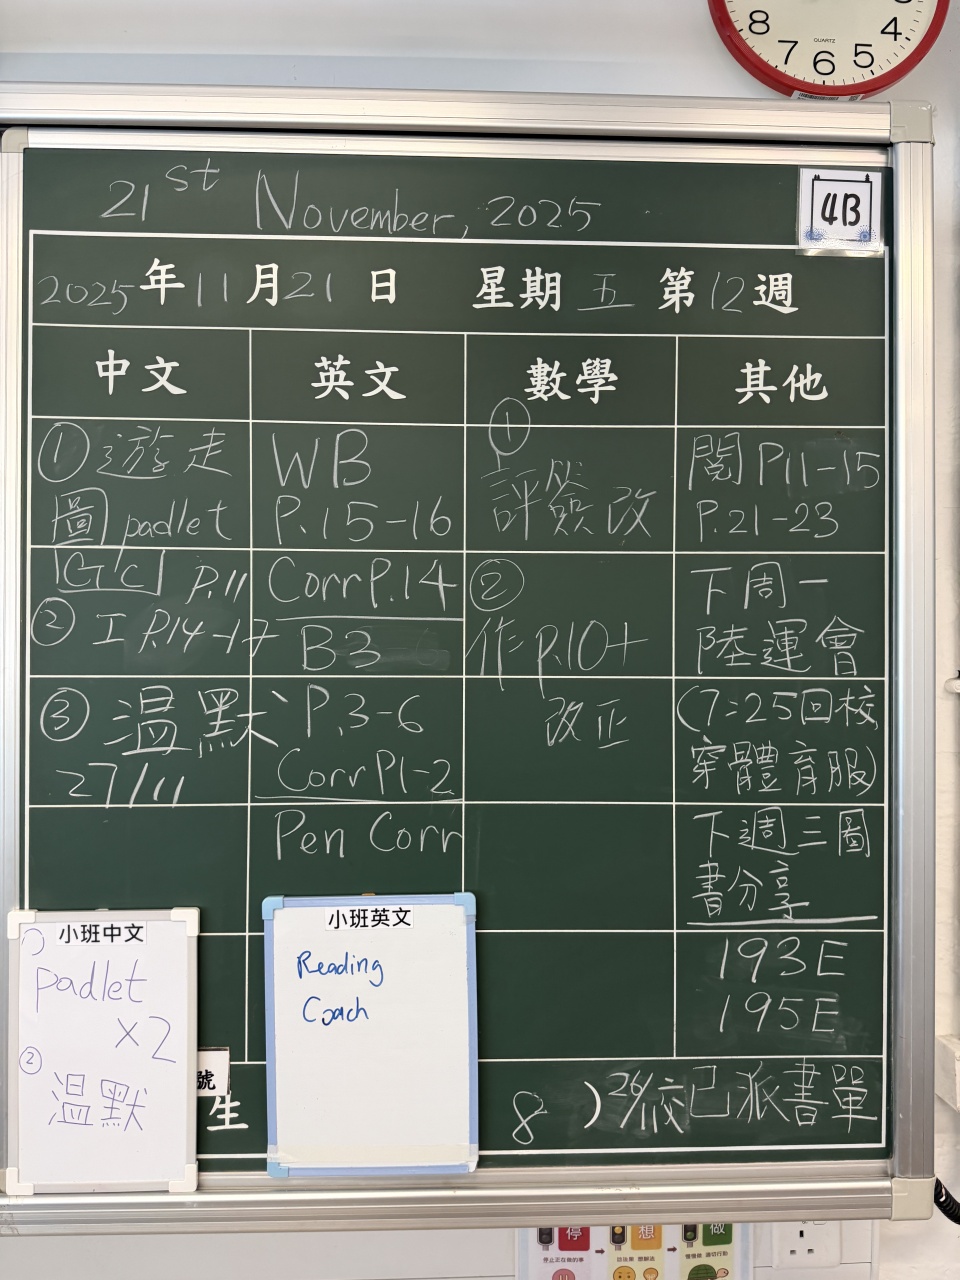 8
4
7
6
5
QUARTZ
21st November, 2025
4B
2025年11月21日 星期五 第12週
中文
英文
數學
其他
①遊走
圖padlet
GC P.11
②工P.14-17
③溫默
27/11
WB
P.15-16
Corr P.14
B3
P.3-6
Corr P1-2
Pen Corr
①
評簽改
②
作P.10+
改正
閱P11-15
P.21-23
下周一
陸運會
(7:25回校
穿體育服)
下週三圖
書分享
193E
195E
小班中文
①
padlet
x2
②
溫默
小班英文
Reading
Coach
號
生
8
)26/校已派書單
停
想
做